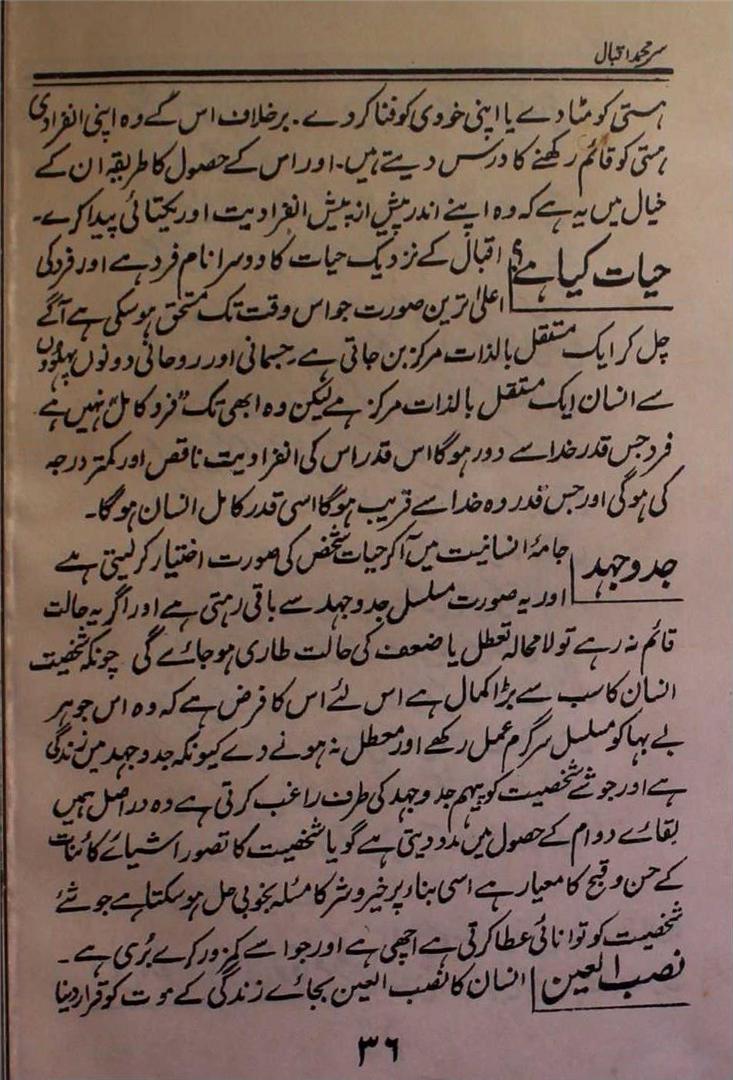 سر محمد اقبال
ہستی کو مٹا دے یا اپنی خودی کو فنا کر دے۔ برخلاف اس کے وہ اپنی انفرادی
ہستی کو قائم رکھنے کا درس دیتے ہیں۔ اور اس کے حصول کا طریقہ ان کے
خیال میں یہ ہے کہ وہ اپنے اندر بیش از بیش انفرادیت اور یکتائی پیدا کرے۔
حیات کیا ہے؟ اقبال کے نزدیک حیات کا دوسرا نام فرد ہے اور فرد کی
اعلیٰ ترین صورت جو اس وقت تک متحقق ہو سکی ہے آگے
چل کر ایک مستقل بالذات مرکز بن جاتی ہے۔ جسمانی اور روحانی دونوں پہلوؤں
سے انسان ایک مستقل بالذات مرکز ہے لیکن وہ ابھی تک "فرد کامل" نہیں ہے
فرد جس قدر خدا سے دور ہوگا اس قدر اس کی انفرادیت ناقص اور کمتر درجہ
کی ہوگی اور جس قدر وہ خدا سے قریب ہوگا اسی قدر کامل انسان ہوگا۔
جدوجہد جامۂ انسانیت میں آ کر حیات شخص کی صورت اختیار کر لیتی ہے
اور یہ صورت مسلسل جدوجہد سے باقی رہتی ہے اور اگر یہ حالت
قائم نہ رہے تو لا محالہ تعطل یا ضعف کی حالت طاری ہو جائے گی چونکہ شخصیت
انسان کا سب سے بڑا کمال ہے اس لئے اس کا فرض ہے کہ وہ اس جوہر
بے بہا کو مسلسل سرگرم عمل رکھے اور معطل نہ ہونے دے کیونکہ جدوجہد میں زندگی
ہے اور جو شے شخصیت کو پیہم جدوجہد کی طرف راغب کرتی ہے وہ دراصل ہمیں
بقائے دوام کے حصول میں مدد دیتی ہے گویا شخصیت کا تصور اشیائے کائنات
کے حسن و قبح کا معیار ہے اسی بناء پر خیر و شر کا مسئلہ بخوبی حل ہو سکتا ہے جو شئے
شخصیت کو توانائی عطا کرتی ہے اچھی ہے اور جو اسے کمزور کرے بُری ہے۔
نصب العین انسان کا نصب العین بجائے زندگی کے موت کو قرار دینا
۳۶